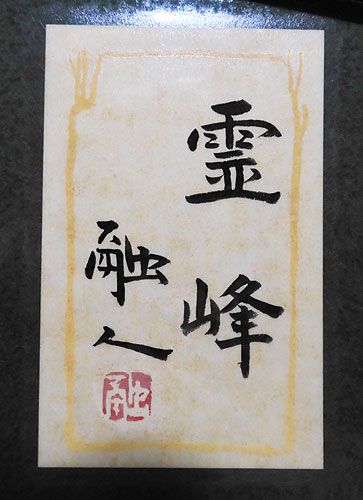 霊峰
融人
融